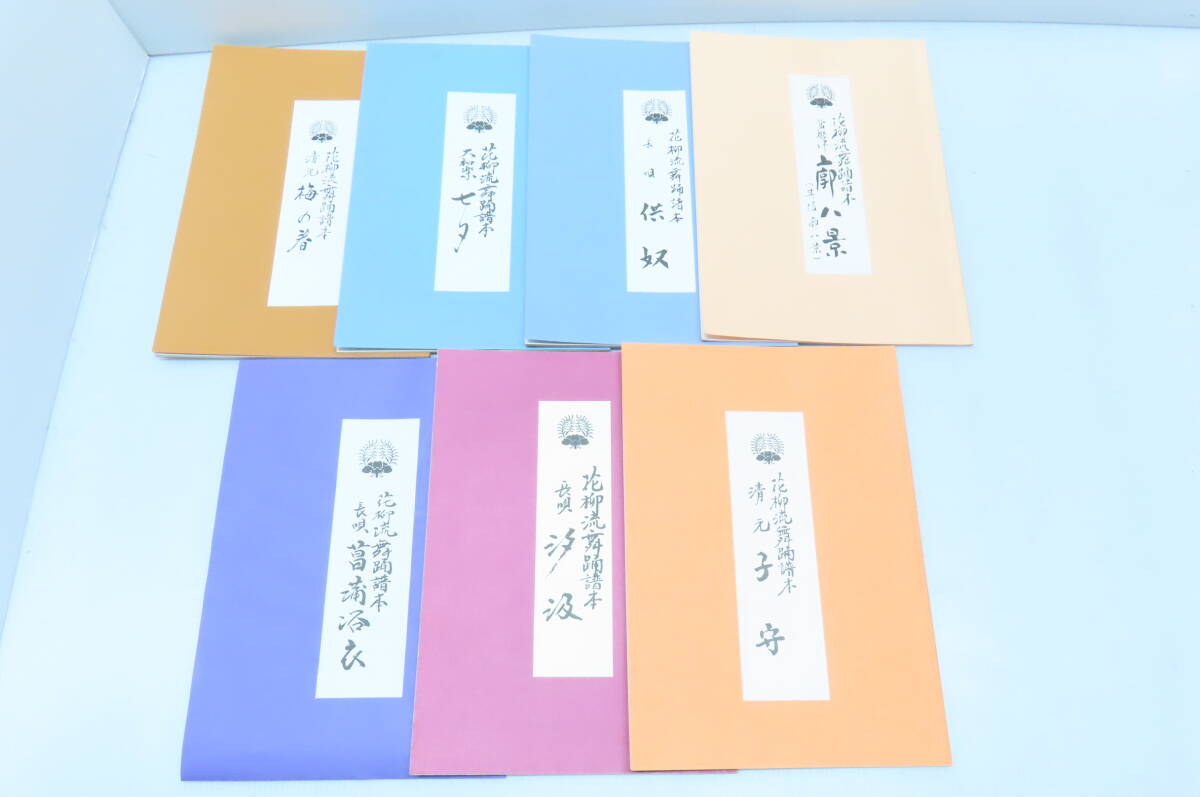 花柳流舞踊譜本
清元 梅の春
花柳流舞踊譜本
大和楽 七夕
花柳流舞踊譜本
長唄 供奴
花柳流舞踊譜本
常磐津 廓八景
花柳流舞踊譜本
長唄 菖蒲浴衣
花柳流舞踊譜本
長唄 汐汲
花柳流舞踊譜本
清元 子守